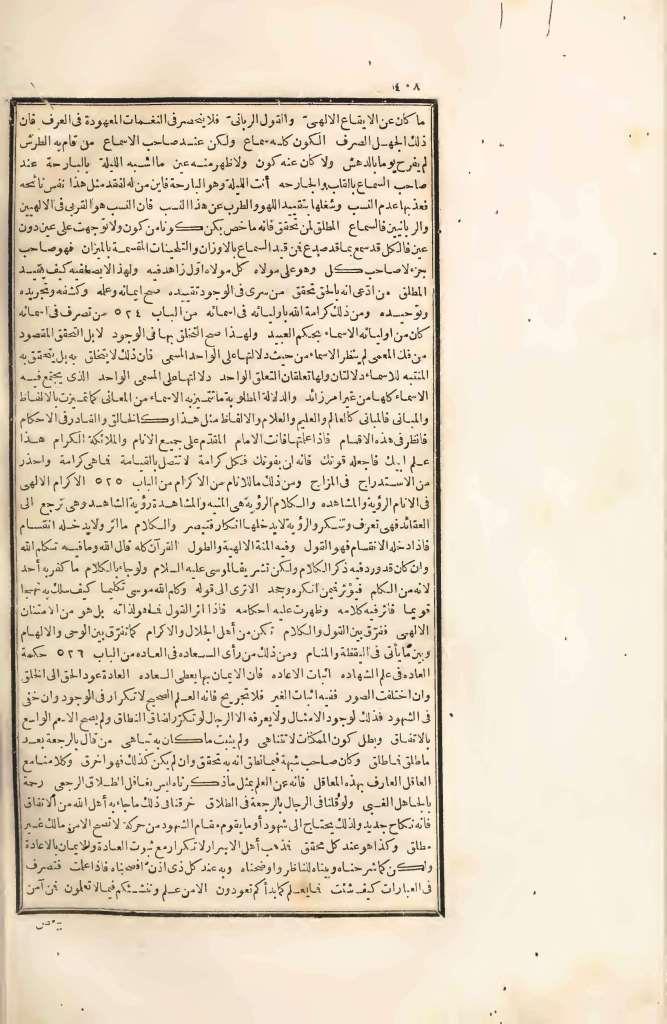 ٤٠٨
ما كان عن الايقاع الالهى والقول الربانى فلا ينحصر فى النغمات المعهودة فى العرف فان
ذلك الجهل الصرف الكون كله سماع ولكن عند صاحب الاسماع من قام به الطرش
لم يفرح يوما بالدهش ولا كان عنه كون ولا ظهر منه عين ما أشبه الليلة بالبارحة عند
صاحب السماع بالقلب والجارحه أنت الليلة وهو البارحة فاين من له لفقد مثل هذا نفس نائحه
فعذبها عدم النسب وشغلها بتقييد اللهو والطرب عن هذا النسب فان النسب هو القربى فى الالهيين
والربانيين فالسماع المطلق لمن تحقق فانه ما خص بكن كونا من كون ولا توجهت على عين دون
عين فالكل قد سمع بما قد صدع فمن قيد السماع بالاوزان والتلحينات المقسمة بالميزان فهو صاحب
جزء لا صاحب كل وهو على مولاه كل مولاه أول زاهد فيه ولهذا لا يصطفيه كيف يتقيد
المطلق من ادّعى انه بالحق تحقق من سرى فى الوجود تقييده صح ايمانه وعلمه وكشفه وتجريده
وتوحيده ومن ذلك كرامة الله باوليائه فى اسمائه من الباب ٥٢٤ من تصرف فى أسمائه
كان من اوليائه الاسماء بحكم العبيد ولهذا صح التخلق بها فى الوجود لا بل التحقق المقصود
من فك المعمى لم ينظر الاسماء من حيث دلالتها على الواحد المسمى فان ذلك لا يتخلق به بل يتحقق به
المنتبه للاسماء دلالتان ولها تعلقان التعلق الواحد دلالتها على المسمى الواحد الذى يجتمع فيه
الاسماء كلها من غير امر زائد والدلالة المطلوبة ما تتميز به الاسماء من المعانى كما تميزت بالالفاظ
والمبانى فالمبانى كالعالم والعليم والعلام والالفاظ مثل هذا وكالخالق والقادر فى الاحكام
فانظر فى هذه الاقسام فاذا علمتها فانت الامام المقدم على جميع الانام والملائكة الكرام هذا
علم ابيك فاجعله قوتك فانه ان يفوتك فكل كرامة لا تتصل بالقيامة فما هى كرامة واحذر
من الاستدراج فى المزاج ومن ذلك ما للانام من الاكرام من الباب ٥٢٥ الاكرام الالهى
فى الانام الرؤية والمشاهده والكلام الرؤية هى المنيه والمشاهدة رؤية الشاهد وهى ترجع الى
العقائد فهى تعرف وتنكر والرؤية لا يدخلها انكار فتبصر والكلام ما اثر ولا يدخله انقسام
فاذا دخله الانقسام فهو القول وفيه المنة الالهية والطول القرآن كله قال الله وما فيه تكلم الله
وان كان قد ورد فيه ذكر الكلام ولكن تشريفا لموسى عليه السلام ولو جاء بالكلام ما كفر به أحد
لانه من الكلم فيؤثر فيمن أنكره وجحد الا ترى الى قوله وكلم الله موسى تكليما كيف سلك به نهجا
قويما فاثر فيه كلامه وظهرت عليه احكامه فاذا اثر القول فما هو لذاته بل هو من الامتنان
الالهى ففرّق بين القول والكلام تكن من أهل الجلال والاكرام كما تفرّق بين الوحى والالهام
وبين ما يأتى فى اليقظة والمنام ومن ذلك من رأى السعاده فى العاده من الباب ٥٢٦ حكمة
العاده فى علم الشهاده اثبات الاعاده فان الايمان بها يعطى السعاده العادة عود الحق الى الخلق
وان اختلفت الصور ففيه اثبات الغير فلا تجريح فانه العلم الصحيح لا تكرار فى الوجود وان خفى
فى الشهود فذلك لوجود الامثال ولا يعرفه الا الرجال لو تكرر لضاق النطاق ولم يصح الاسم الواسع
بالاتفاق وبطل كون الممكنات لا تتناهى ولم يثبت ما كان به تباهى من قال بالرجعة بعد
ما طلق فما طلق وكان صاحب شبهة فيما نطق انه به تحقق وان لم يكن كذلك فهو اخرق وكلامنا مع
العاقل العارف بهذه المعاقل فانه عن العلم بمثل ما ذكرناه ليس بغافل الطلاق الرجعى رحمة
بالجاهل الغبى ولو قلنا فى الرجال بالرجعة فى الطلاق خرقنا فى ذلك ما جاء به أهل الله من الاتفاق
فانه نكاح جديد ولذلك يحتاج الى شهود أو ما يقوم مقام الشهود من حركة لا تصح الا من مالك غير
مطلق وكذا هو عند كل محقق فذهب أهل الاسرار لا تكرار مع ثبوت العادة والايمان بالاعادة
ولكن كما شرحناه وبيناه للناظر واوضحناه وبه عند كل ذى اذن أفصحناه فاذا علمت فتصرف
فى العبارات كيف شئت فما يعلم كما بدأكم تعودون الا من علم وننشئكم فيما لا تعلمون فمن آمن